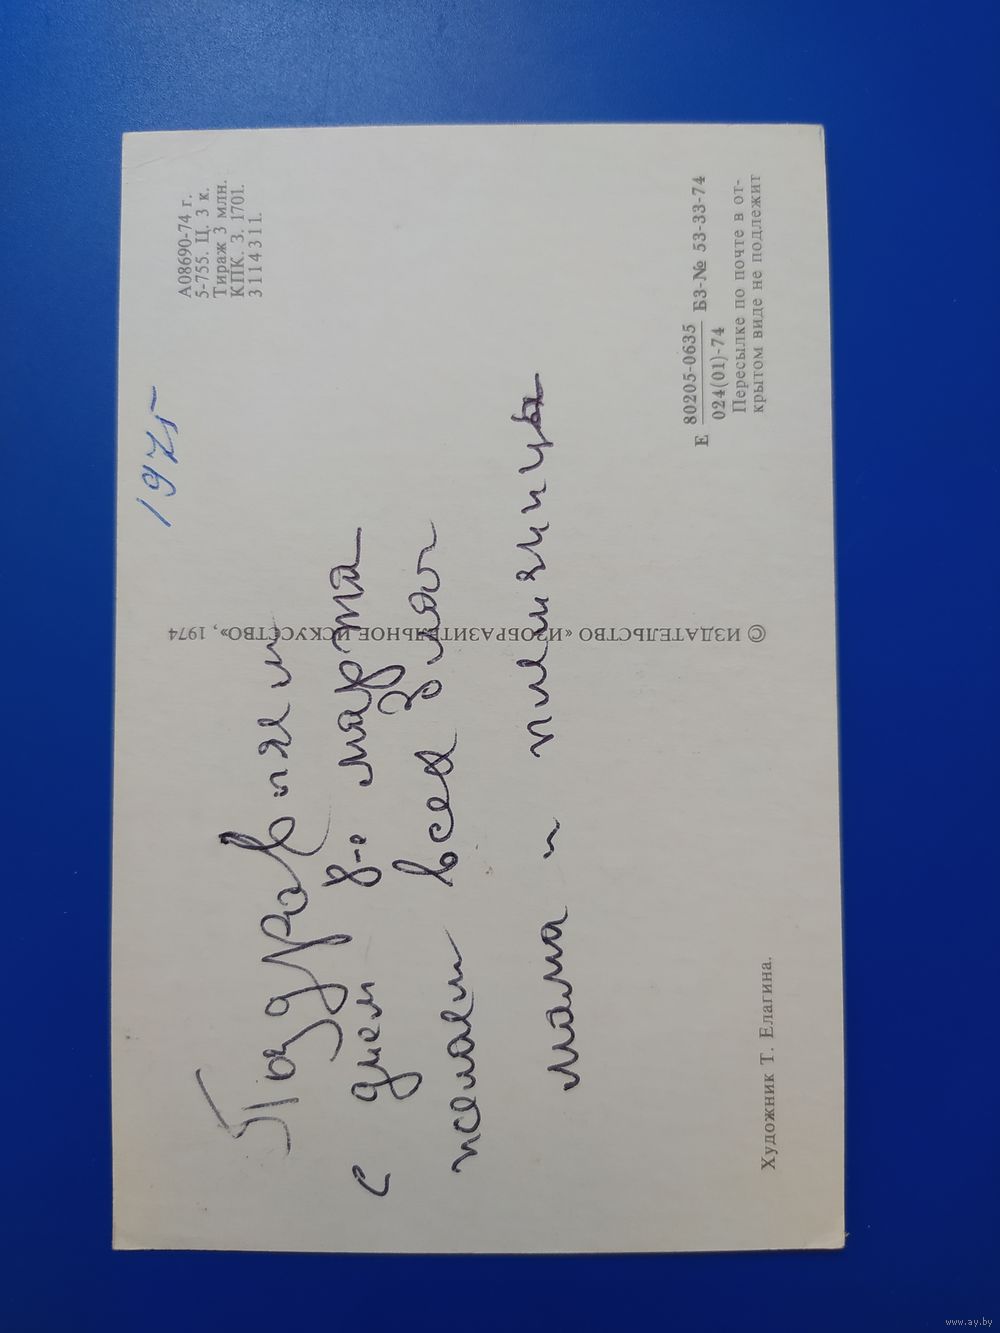 1975
Поздравляем
с днем 8-е марта
желаем всеа Злао
мама и племяница
А08690-74 г.
5-755. Ц. 3 к.
Тираж 3 млн.
КПК. З. 1701.
3114311.
© ИЗДАТЕЛЬСТВО «ИЗОБРАЗИТЕЛЬНОЕ ИСКУССТВО», 1974
Е 80205-0635 БЗ-№ 53-33-74
024(01)-74
Пересылке по почте в от-
крытом виде не подлежит
Художник Т. Елагина.
www.ay.by